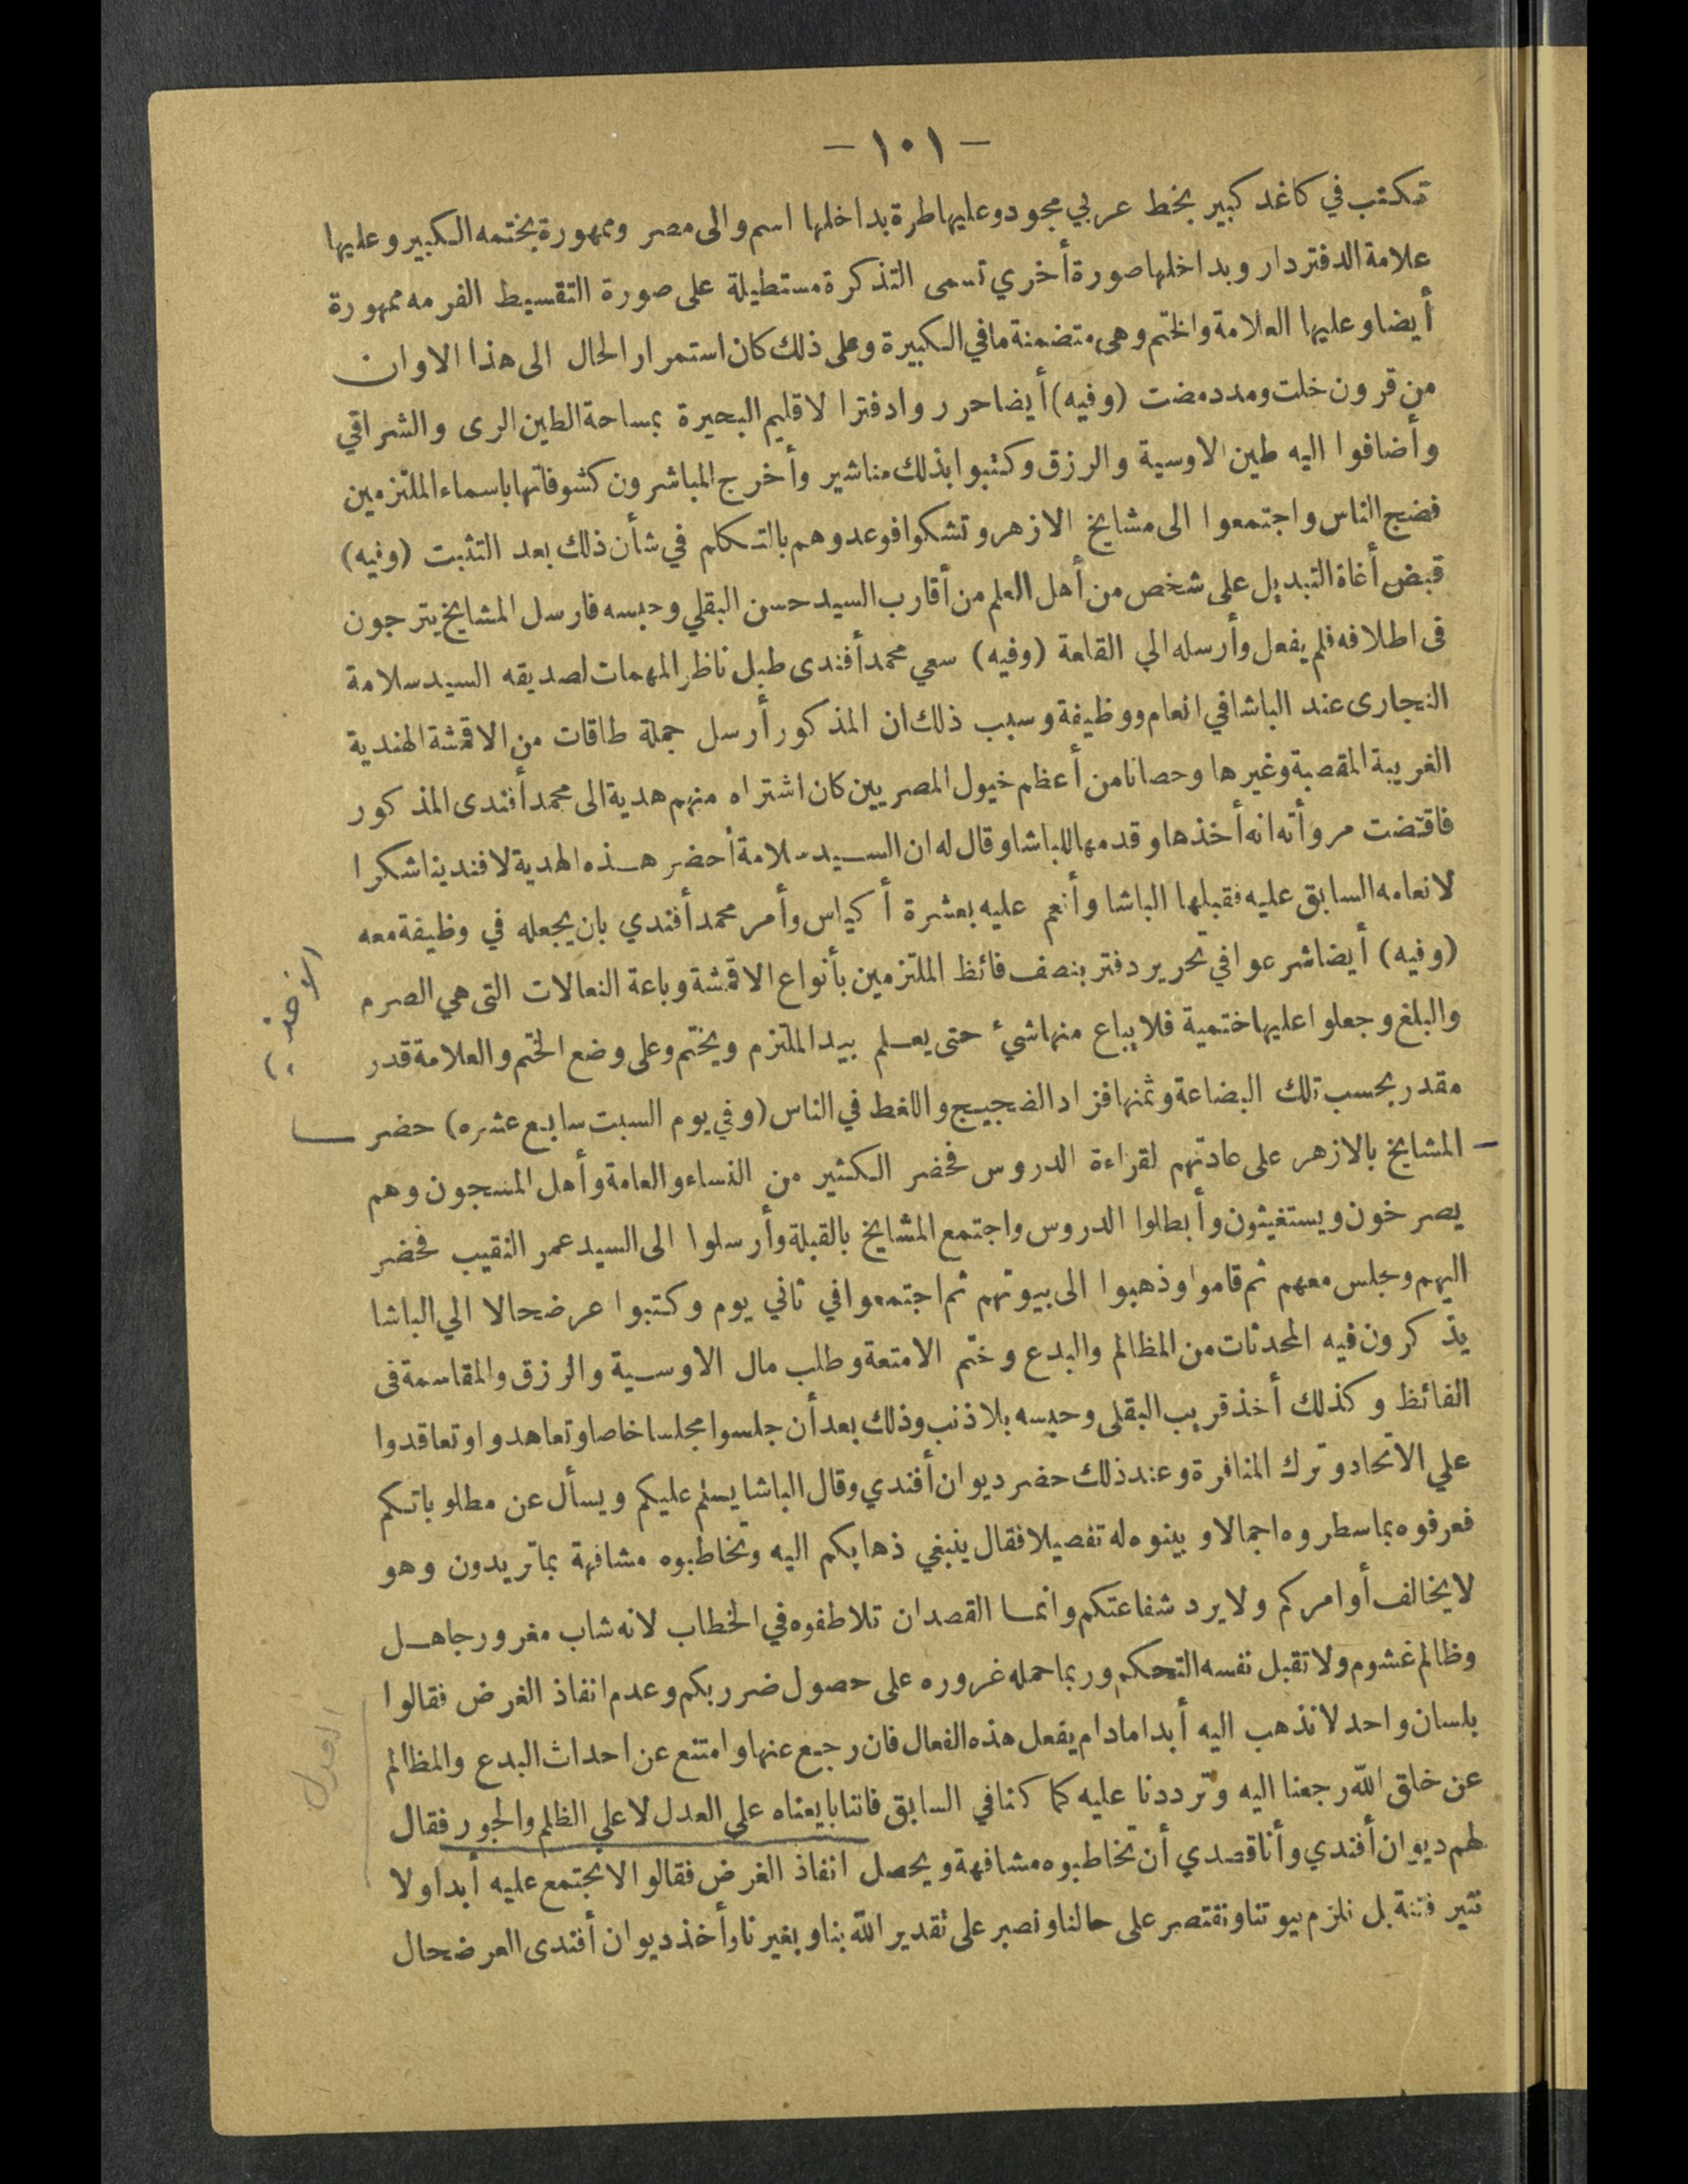 — ١٠١ —
تكتب في كاغد كبير بخط عربي مجود وعليها طرة بداخلها اسم والى مصر وممهورة بختمه الكبير وعليها
علامة الدفتردار وبداخلها صورة أخري تسمى التذكرة مستطيلة على صورة التقسيط الفرمه ممهورة
أيضا وعليها العلامة والختم وهى متضمنة ما في الكبيرة وعلى ذلك كان استمرار الحال الى هذا الاوان
من قرون خلت ومدد مضت (وفيه) أيضا حرروا دفترا لاقليم البحيرة بمساحة الطين الرى والشراقي
وأضافوا اليه طين الاوسية والرزق وكتبوا بذلك مناشير وأخرج المباشرون كشوفاتها باسماء الملتزمين
فضج الناس واجتمعوا الى مشايخ الازهر وتشكوا فوعدوهم بالتكلم في شأن ذلك بعد التثبت (وفيه)
قبض أغاة التبديل على شخص من أهل العلم من أقارب السيد حسن البقلي وحبسه فارسل المشايخ يترجون
فى اطلاقه فلم يفعل وأرسله الي القلعة (وفيه) سعي محمد أفندى طبل ناظر المهمات لصديقه السيد سلامة
النجارى عند الباشا في انعام ووظيفة وسبب ذلك ان المذكور أرسل جملة طاقات من الاقمشة الهندية
الغريبة المقصبة وغيرها وحصانا من أعظم خيول المصريين كان اشتراه منهم هدية الى محمد أفندى المذكور
فاقتضت مروأته انه أخذها وقدمها للباشا وقال له ان السيد سلامة أحضر هذه الهدية لافندينا شكرا
لانعامه السابق عليه فقبلها الباشا وأنعم عليه بعشرة أكياس وأمر محمد أفندي بان يجعله في وظيفة معه
(وفيه) أيضا شرعوا في تحرير دفتر بنصف فائظ الملتزمين بأنواع الاقمشة وباعة النعالات التى هي الصرم
والبلغ وجعلوا عليها ختمية فلا يباع منها شيء حتى يعلم بيد الملتزم ويختم وعلى وضع الختم والعلامة قدر
مقدر بحسب تلك البضاعة وثمنها فزاد الضجيج واللغط في الناس (وفي يوم السبت سابع عشره) حضر
المشايخ بالازهر على عادتهم لقراءة الدروس فحضر الكثير من النساء والعامة وأهل المسجون وهم
يصرخون ويستغيثون وأبطلوا الدروس واجتمع المشايخ بالقبلة وأرسلوا الى السيد عمر النقيب فحضر
اليهم وجلس معهم ثم قاموا وذهبوا الى بيوتهم ثم اجتمعوا في ثاني يوم وكتبوا عرضحالا الي الباشا
يذكرون فيه المحدثات من المظالم والبدع وختم الامتعة وطلب مال الاوسية والرزق والمقاسمة فى
الفائظ وكذلك أخذ قريب البقلى وحبسه بلا ذنب وذلك بعد أن جلسوا مجلسا خاصا وتعاهدوا وتعاقدوا
علي الاتحاد وترك المنافرة وعند ذلك حضر ديوان أفندي وقال الباشا يسلم عليكم ويسأل عن مطلوباتكم
فعرفوه بما سطروه اجمالا وبينوه له تفصيلا فقال ينبغي ذهابكم اليه وتخاطبوه مشافهة بما تريدون وهو
لا يخالف أوامركم ولا يرد شفاعتكم وانما القصد ان تلاطفوه في الخطاب لانه شاب مغرور جاهل
وظالم غشوم ولا تقبل نفسه التحكم وربما حمله غروره على حصول ضرر بكم وعدم انفاذ الغرض فقالوا
بلسان واحد لا نذهب اليه أبدا مادام يفعل هذه الفعال فان رجع عنها وامتنع عن احداث البدع والمظالم
عن خلق الله رجعنا اليه وترددنا عليه كما كنا في السابق فاننا بايعناه علي العدل لا علي الظلم والجور فقال
لهم ديوان أفندي وأنا قصدي أن تخاطبوه مشافهة ويحصل انفاذ الغرض فقالوا لا نجتمع عليه أبدا ولا
نثير فتنة بل نلزم بيوتنا ونقتصر على حالنا ونصبر على تقدير الله بنا وبغيرنا وأخذ ديوان أفندى العرضحال
العدل